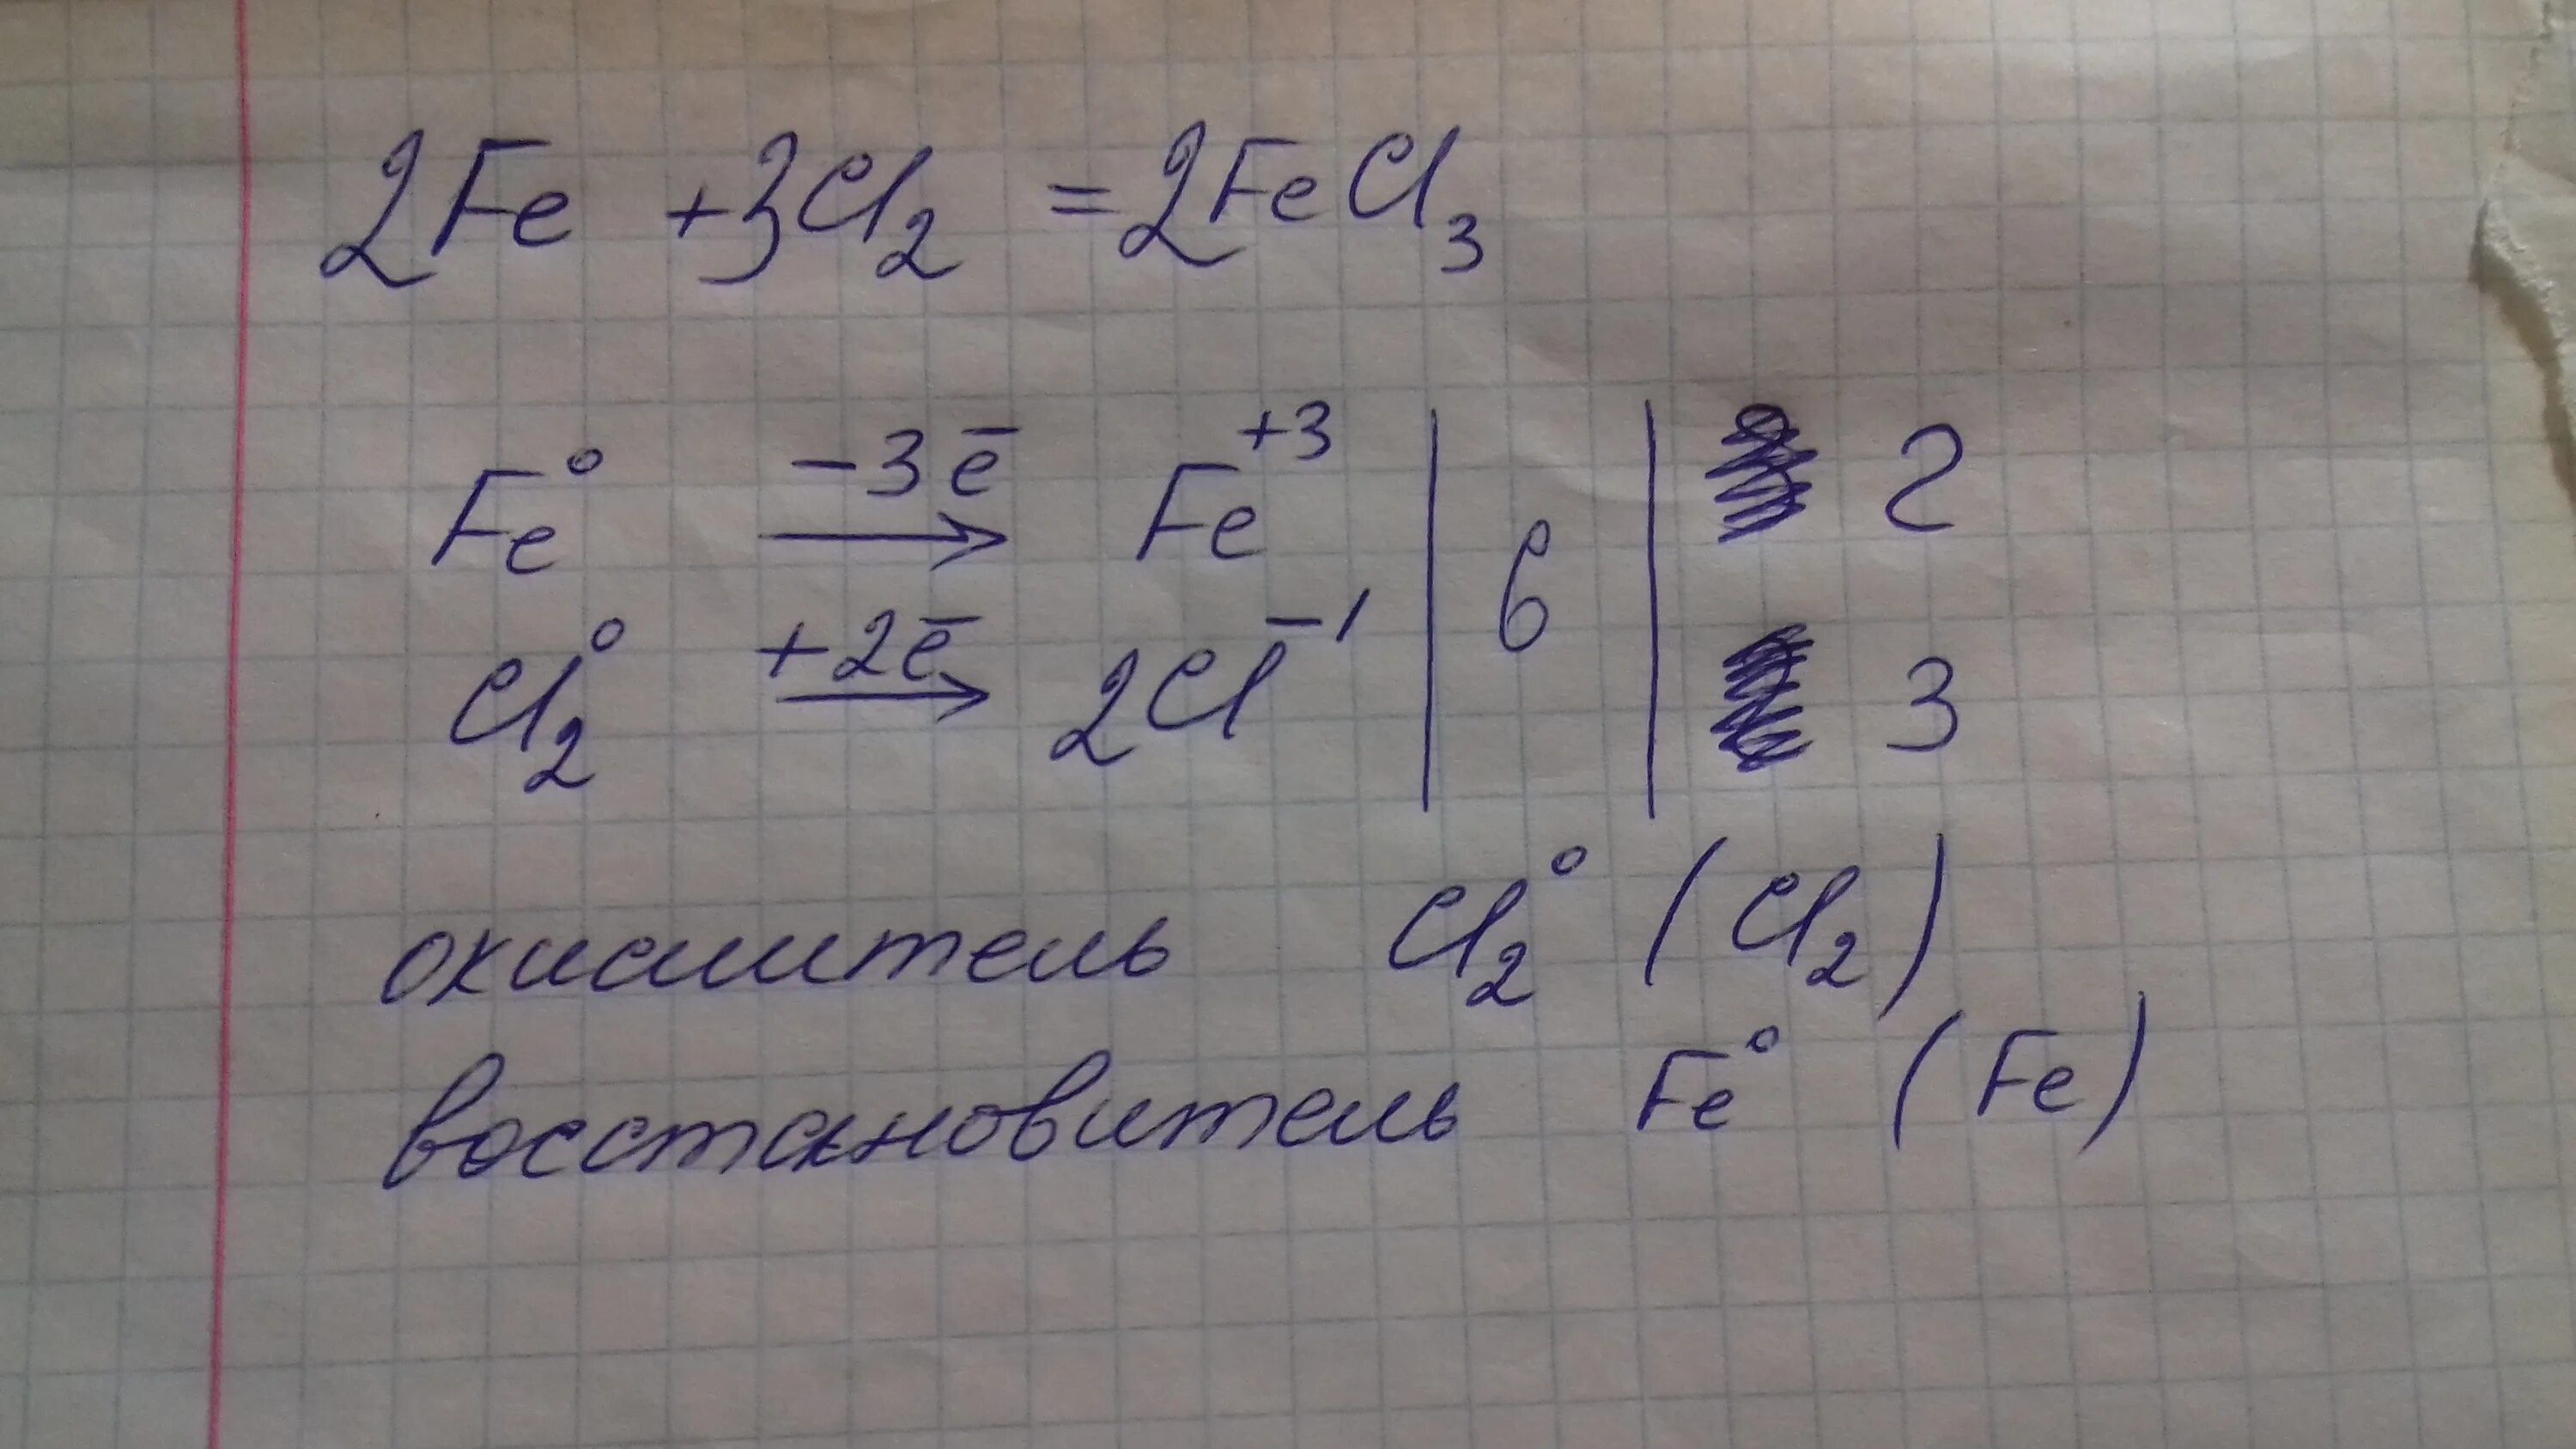 2Fe + 3Cl₂ = 2FeCl₃
Fe⁰ −3ē → Fe⁺³ | 6 | 2
Cl₂⁰ +2ē → 2Cl⁻¹ | | 3
окислитель Cl₂⁰ (Cl₂)
восстановитель Fe⁰ (Fe)